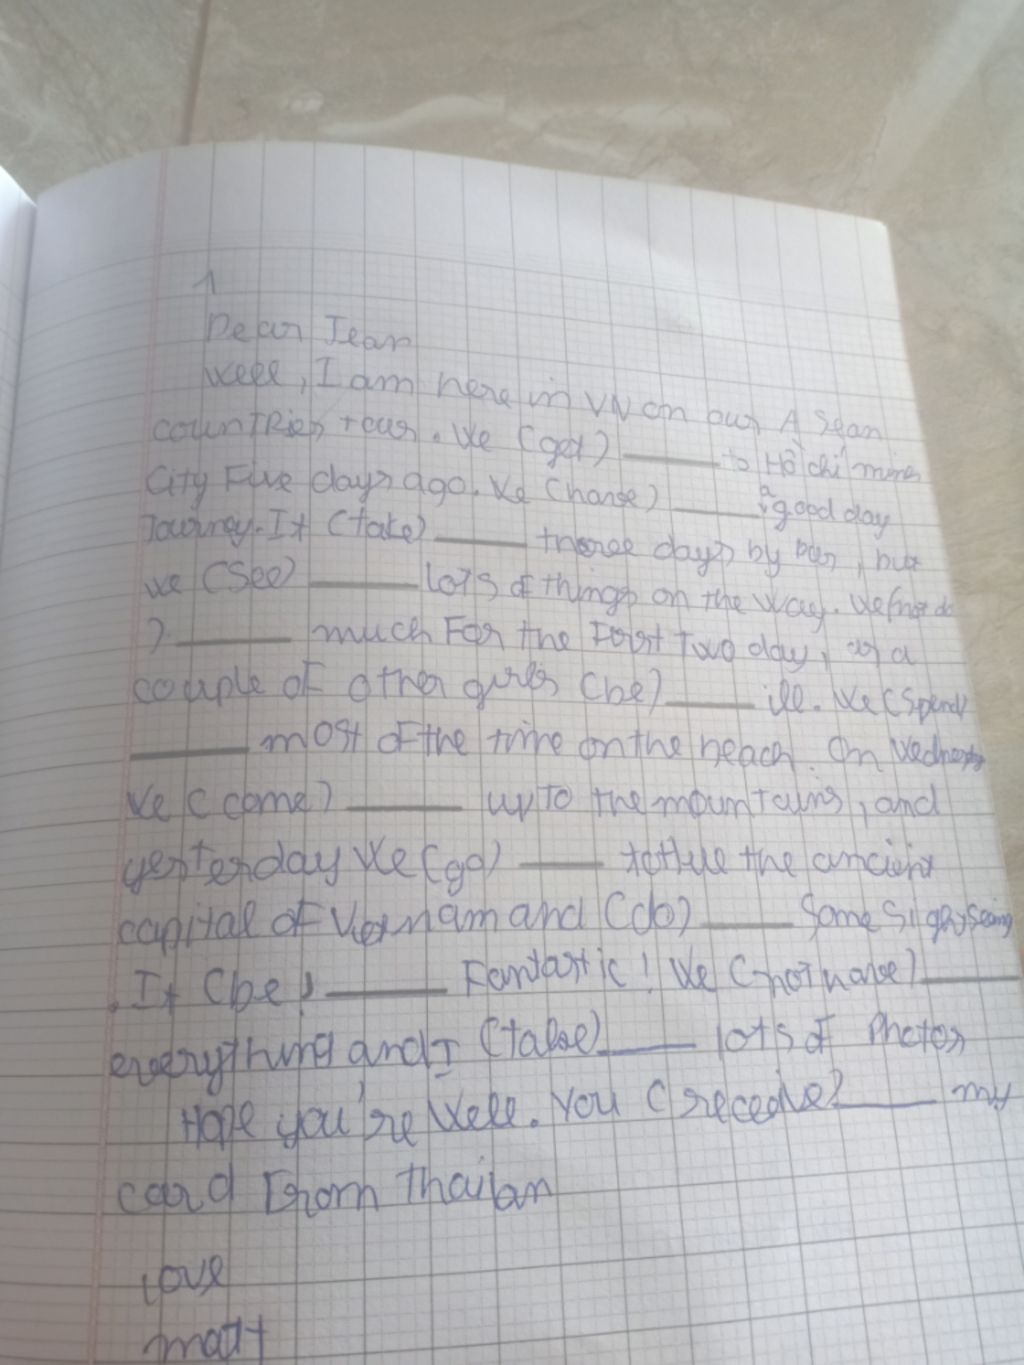 1
Dear Jean
Well, I am here in VN on our A Sean
countries tour. We (get) ______ to Hồ chí minh
City Five days ago. We (have) ______ a good day
Journey. It (take) ______ three days by bus, but
we (see) ______ lots of things on the way. We (not do
) ______ much For the First Two day, as a
couple of other girls (be) ______ ill. We (spend)
______ most of the time on the beach. On Wednesday
We (come) ______ up to the mountains, and
yesterday We (go) ______ to Hue the ancient
capital of Vietnam and (do) ______ Some
. It (be) ______ Fantastic! We (not have) ______
everything and I (take) ______ lots of Photos
Hope you're Well. You (receive) ______ my
card From Thailan
love
matt